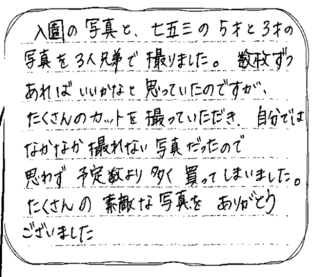 入園の写真と、七五三の5才と3才の
写真を3人兄弟で撮りました。数枚ずつ
あればいいかなと思っていたのですが、
たくさんのカットを撮っていただき、自分では
なかなか撮れない写真だったので
思わず予定数より多く買ってしまいました。
たくさんの素敵な写真をありがとう
ございました